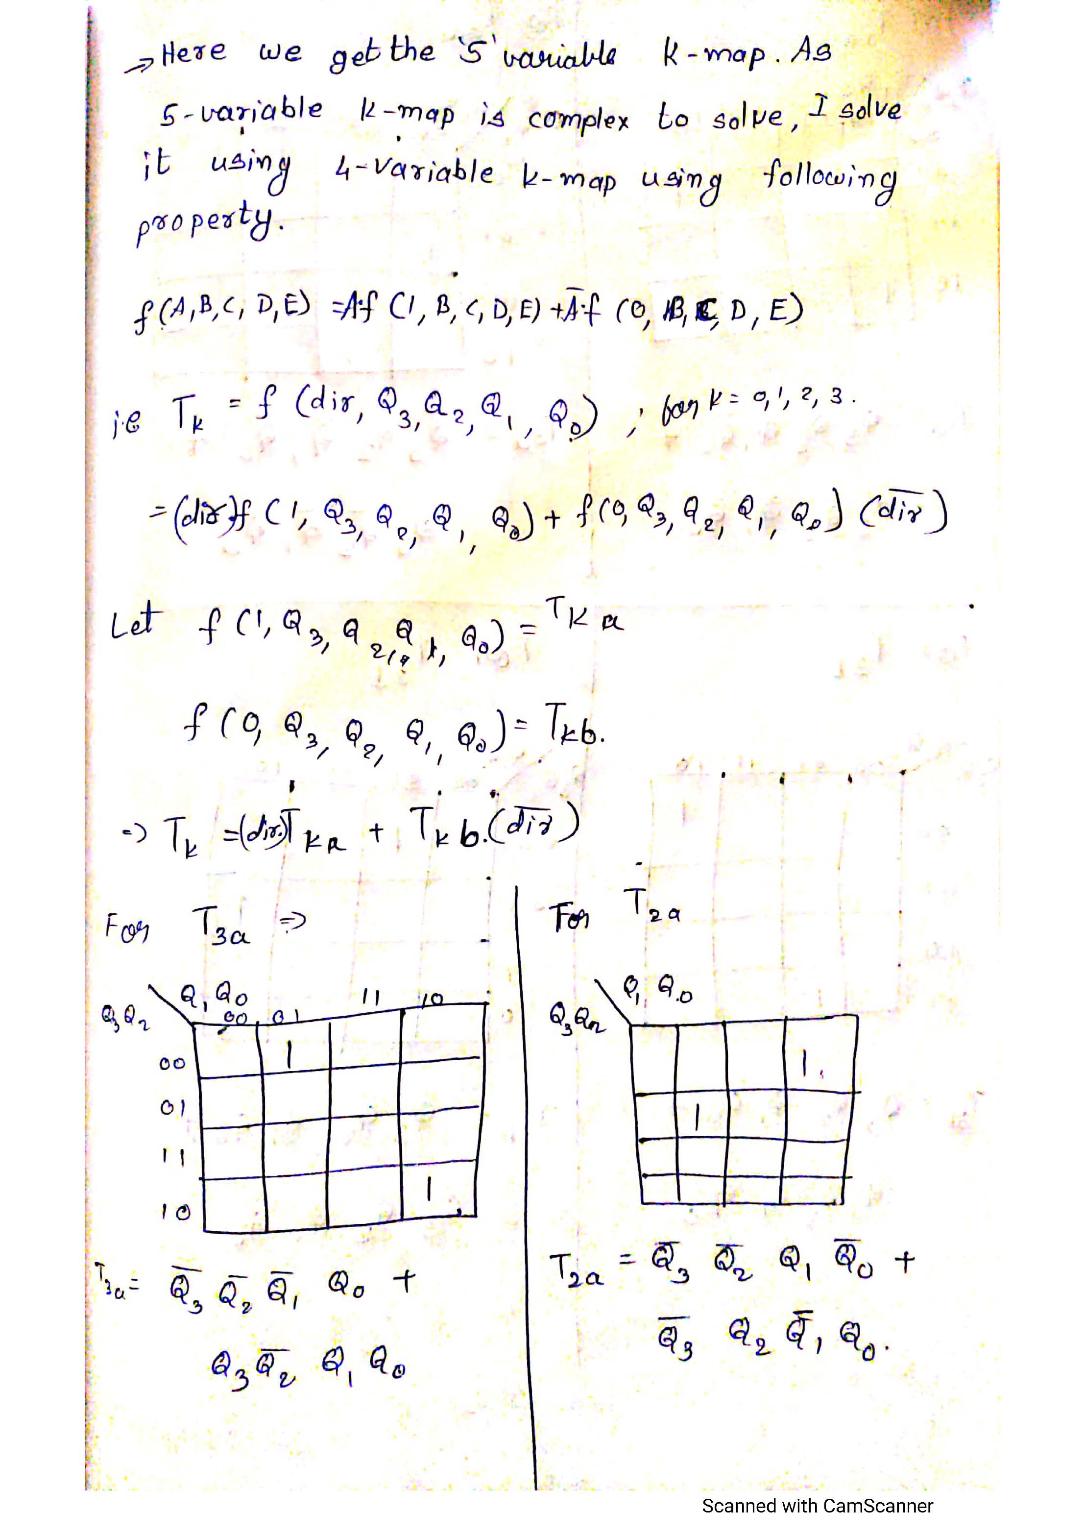 → Here we get the '5' variable k-map. As
5-variable k-map is complex to solve, I solve
it using 4-variable k-map using following
property.
f(A,B,C,D,E) = A·f (1,B,C,D,E) + A̅·f (0,B,C,D,E)
i.e T_k = f (dir, Q₃, Q₂, Q₁, Q₀) ; for k = 0,1,2,3.
= (dir)f (1, Q₃, Q₂, Q₁, Q₀) + f(0, Q₃, Q₂, Q₁, Q₀) (d̅i̅r̅)
Let f(1, Q₃, Q₂, Q₁, Q₀) = T_ka
f(0, Q₃, Q₂, Q₁, Q₀) = T_kb.
=> T_k = (dir)T_ka + T_kb.(d̅i̅r̅)
For T₃a ⇒
Q₁Q₀
Q₃Q₂
00 01 11 10
00 1
01
11
10 1
T₃a = Q̅₃ Q̅₂ Q̅₁ Q₀ +
Q₃ Q̅₂ Q₁ Q₀
For T₂a
Q₁Q₀
Q₃Q₂
1
1
T₂a = Q̅₃ Q̅₂ Q₁ Q̅₀ +
Q̅₃ Q₂ Q̅₁ Q₀.
Scanned with CamScanner